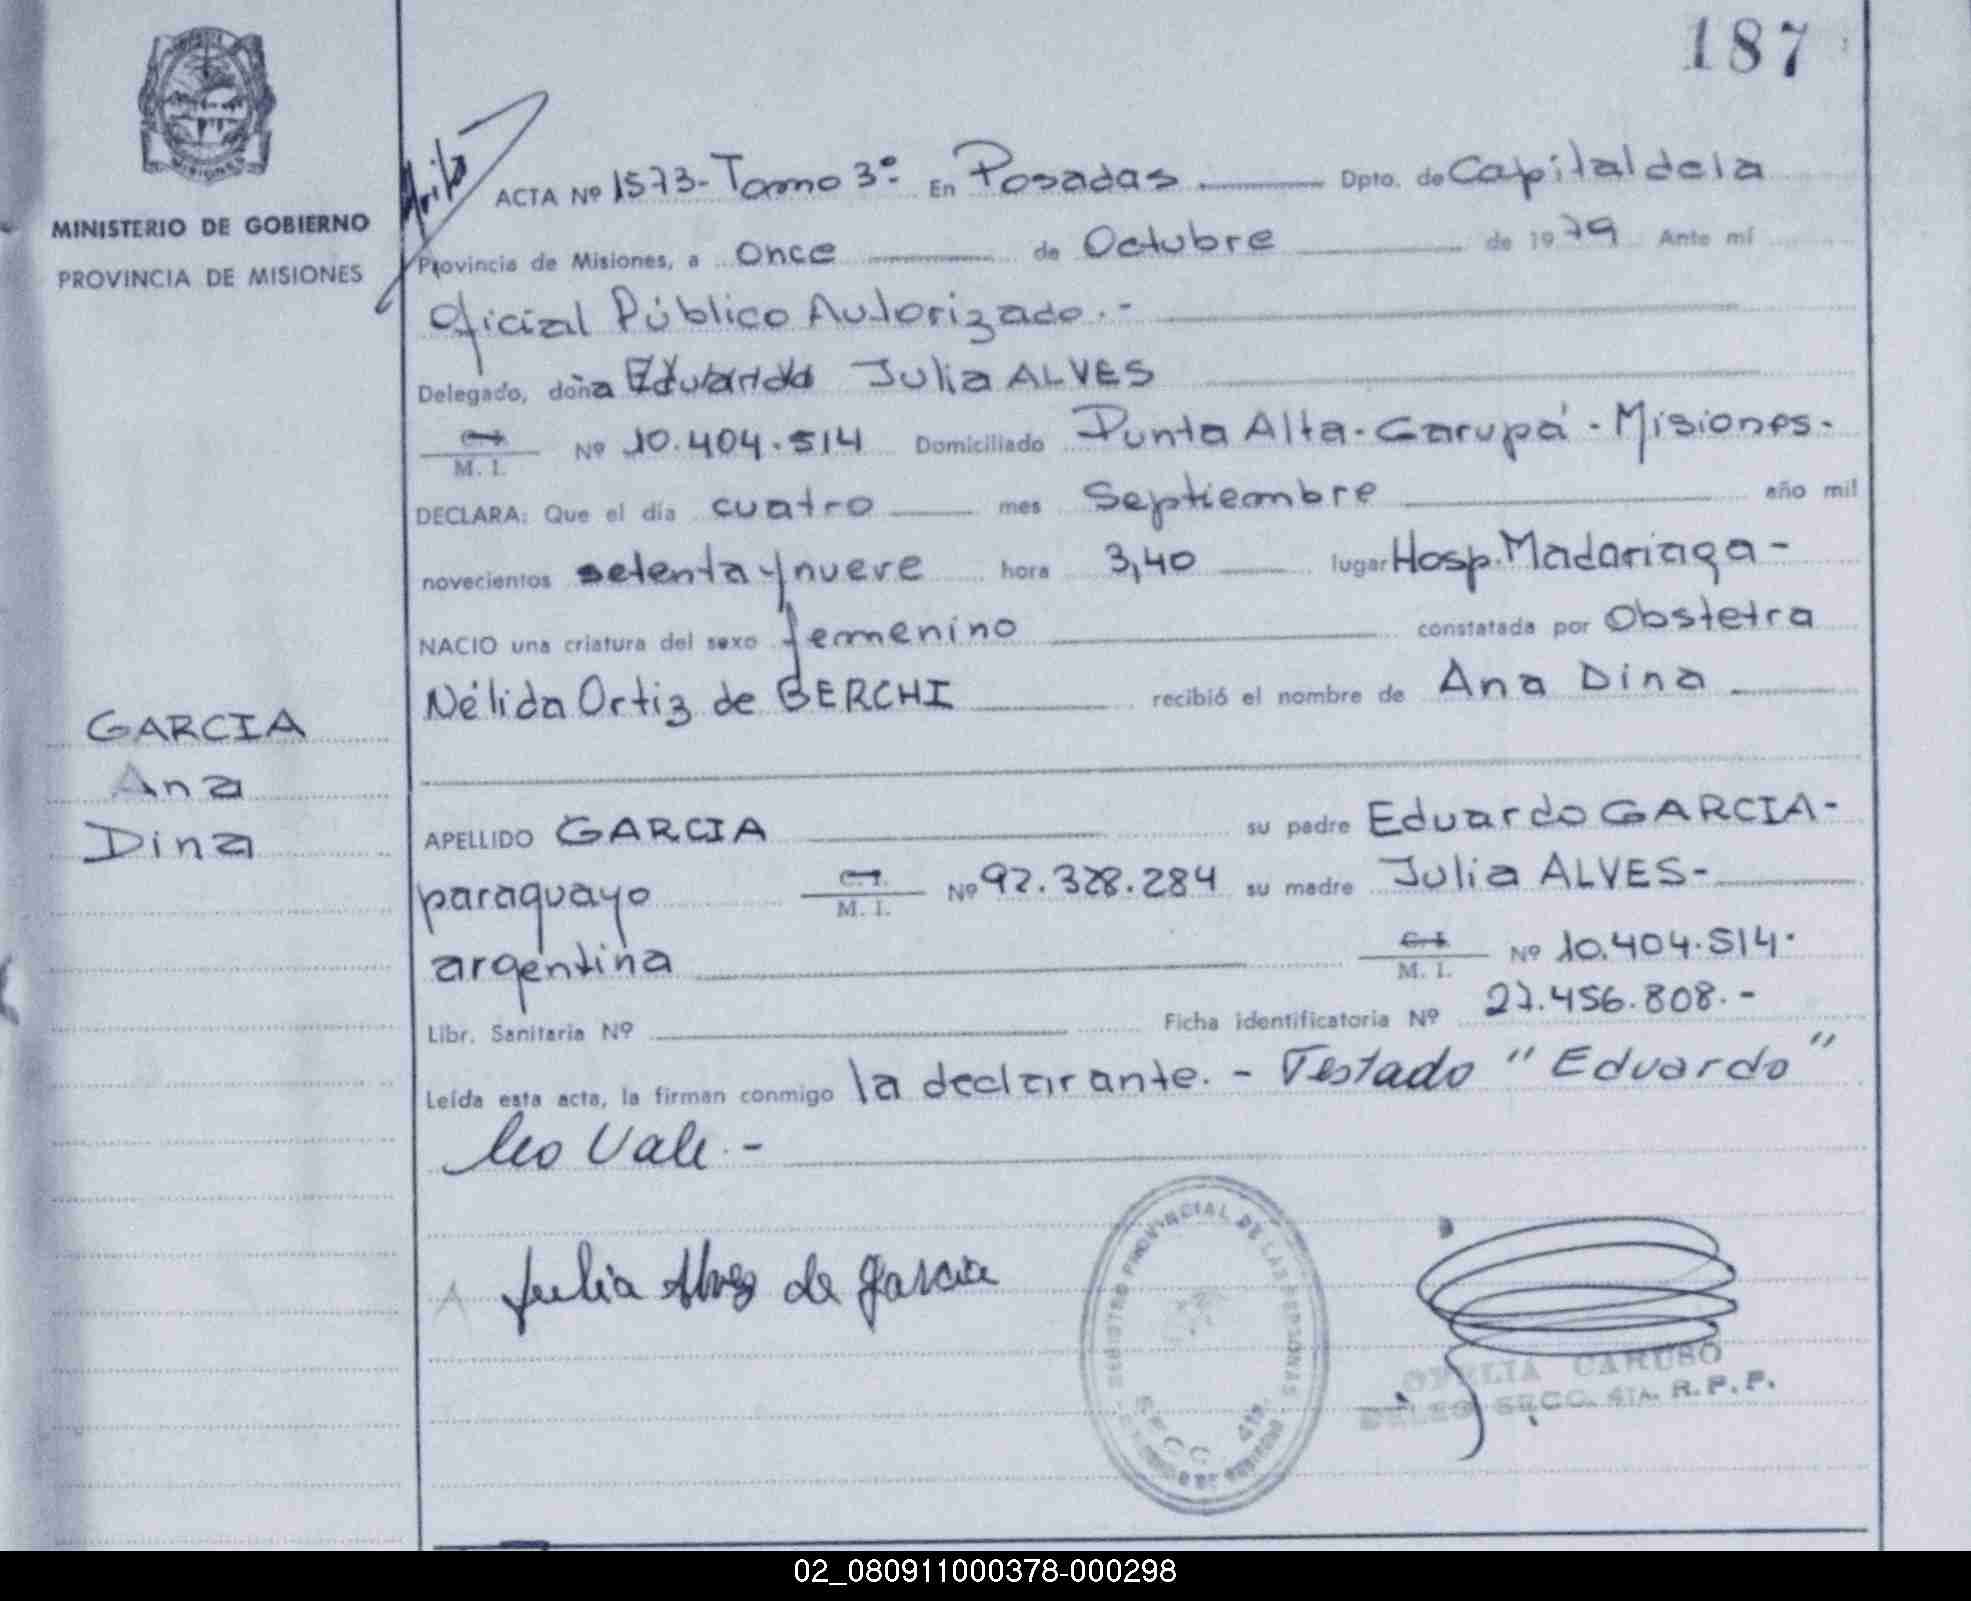 187
MINISTERIO DE GOBIERNO
PROVINCIA DE MISIONES
GARCIA
Ana
Dina
ACTA Nº 1573- Tomo 3º- En Posadas Dpto. de Capital de la
Provincia de Misiones, a once de Octubre de 1979 Ante mí
Oficial Público Autorizado.-
Delegado, doña Eduardo Julia ALVES
C.I.
M. I. Nº 10.404.514 Domiciliado Punta Alta-Garupá-Misiones.
DECLARA: Que el día cuatro mes Septiembre año mil
novecientos setenta y nueve hora 3,40 lugar Hosp. Madariaga-
NACIO una criatura del sexo femenino constatada por Obstetra
Nélida Ortiz de BERCHI recibió el nombre de Ana Dina
APELLIDO GARCIA su padre Eduardo GARCIA-
paraguayo C.I. M. I. Nº 92.328.284 su madre Julia ALVES-
argentina C.I. M. I. Nº 10.404.514.
Libr. Sanitaria Nº Ficha identificatoria Nº 27.456.808.-
Leída esta acta, la firman conmigo la declarante.- Testado "Eduardo"
No Vale.-
Julia Alvez de Garcia
REGISTRO PROVINCIAL DE LAS PERSONAS
SECC. 4ta.
OFELIA CARUSO
DELEG. SECC. 4TA. R.P.P.
02_080911000378-000298